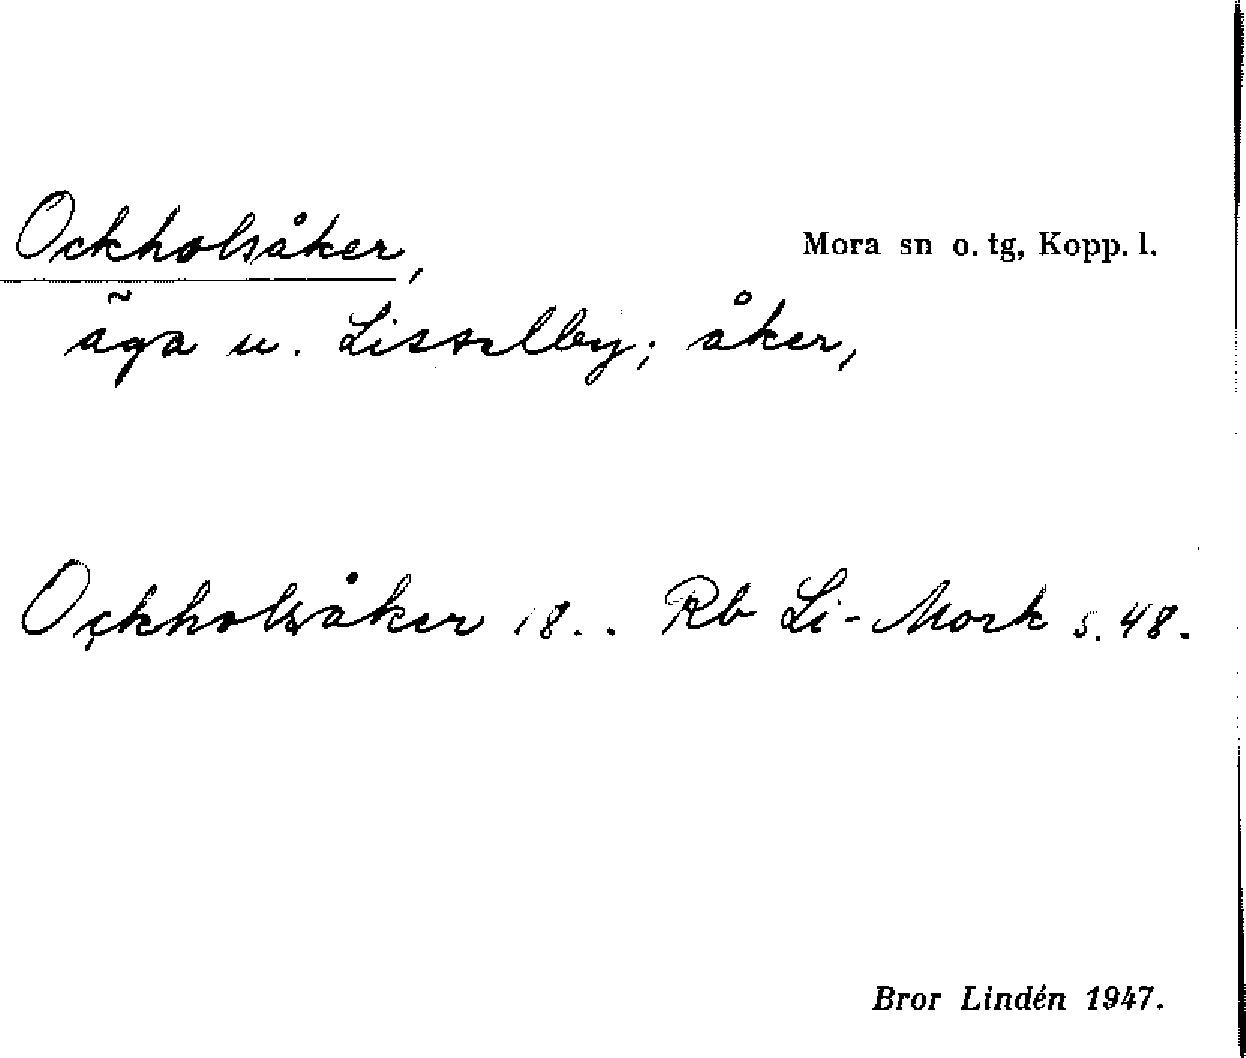 Ockholsåker,
Mora sn o. tg, Kopp. l.
äga u. Lisselby; åker,
Ockholsåker 18.. Rb Li-Mork s. 48.
Bror Lindén 1947.